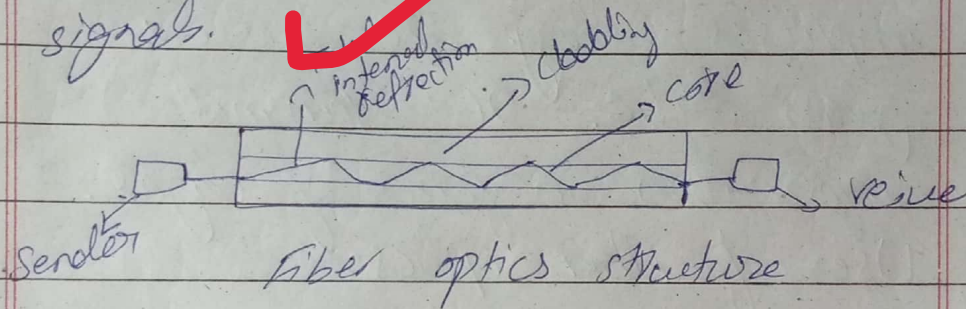 signals.
internal
reflection
cladding
core
Sender
reiue
Fiber optics structure